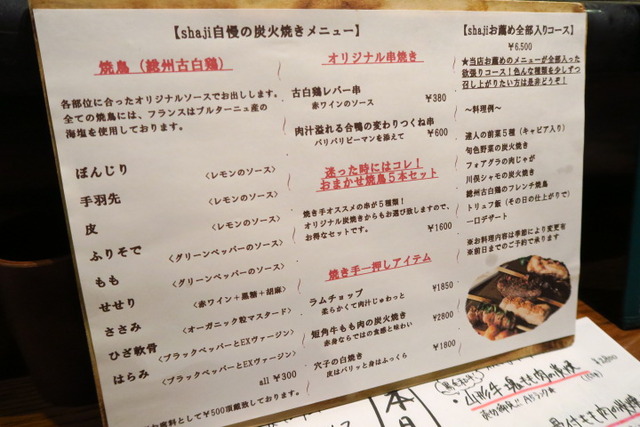 【shaji自慢の炭火焼きメニュー】
焼鳥（総州古白鶏）
各部位に合ったオリジナルソースでお出しします。
全ての焼鳥には、フランスはブルターニュ産の
海塩を使用しております。
ぼんじり 〈レモンのソース〉
手羽先 〈レモンのソース〉
皮 〈レモンのソース〉
ふりそで 〈グリーンペッパーのソース〉
もも 〈グリーンペッパーのソース〉
せせり 〈赤ワイン＋黒糖＋胡麻〉
ささみ 〈オーガニック粒マスタード〉
ひざ軟骨 〈ブラックペッパーとEXヴァージン〉
はらみ 〈ブラックペッパーとEXヴァージン〉
all ¥300
お席料として¥500頂戴致しております。
オリジナル串焼き
古白鶏レバー串 ¥380
赤ワインのソース
肉汁溢れる合鴨の変わりつくね串 ¥600
パリパリピーマンを添えて
迷った時にはコレ！
おまかせ焼鳥５本セット
焼き手オススメの串が５種類！
オリジナル炭焼きからもお選び致しますので、
お得なセットです。 ¥1600
焼き手一押しアイテム
ラムチョップ ¥1850
柔らかくて肉汁じゅわっと
短角牛もも肉の炭火焼き ¥2800
赤身ならではの食感と味わい
穴子の白焼き ¥1800
皮はパリッと身はふっくら
【shajiお薦め全部入りコース】
¥6.500
★当店お薦めのメニューが全部入った
欲張りコース！色んな種類を少しずつ
召し上がりたい方は是非どうぞ！
～料理例～
達人の前菜５種（キャビア入り）
旬色野菜の炭火焼き
フォアグラの肉じゃが
川俣シャモの炭火焼き
総州古白鶏のフレンチ焼鳥
トリュフ飯（その日の仕上がりで）
一口デザート
※お料理内容は季節により変更有
※前日までのご予約で承ります
本日